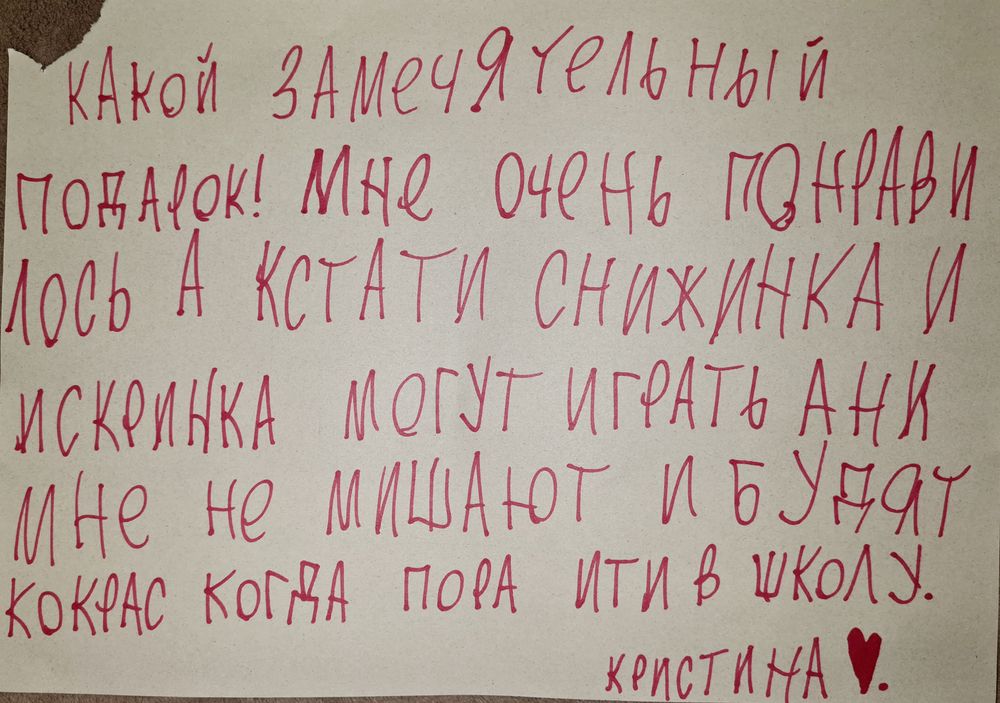 КАКОЙ ЗАМЕЧЯТЕЛЬНЫЙ
ПОДАРОК! МНЕ ОЧЕНЬ ПОНРАВИ
ЛОСЬ А КСТАТИ СНИЖИНКА И
ИСКРИНКА МОГУТ ИГРАТЬ АНИ
МНЕ НЕ МИШАЮТ И БУДЯТ
КОКРАС КОГДА ПОРА ИТИ В ШКОЛУ.
КРИСТИНА ♥.